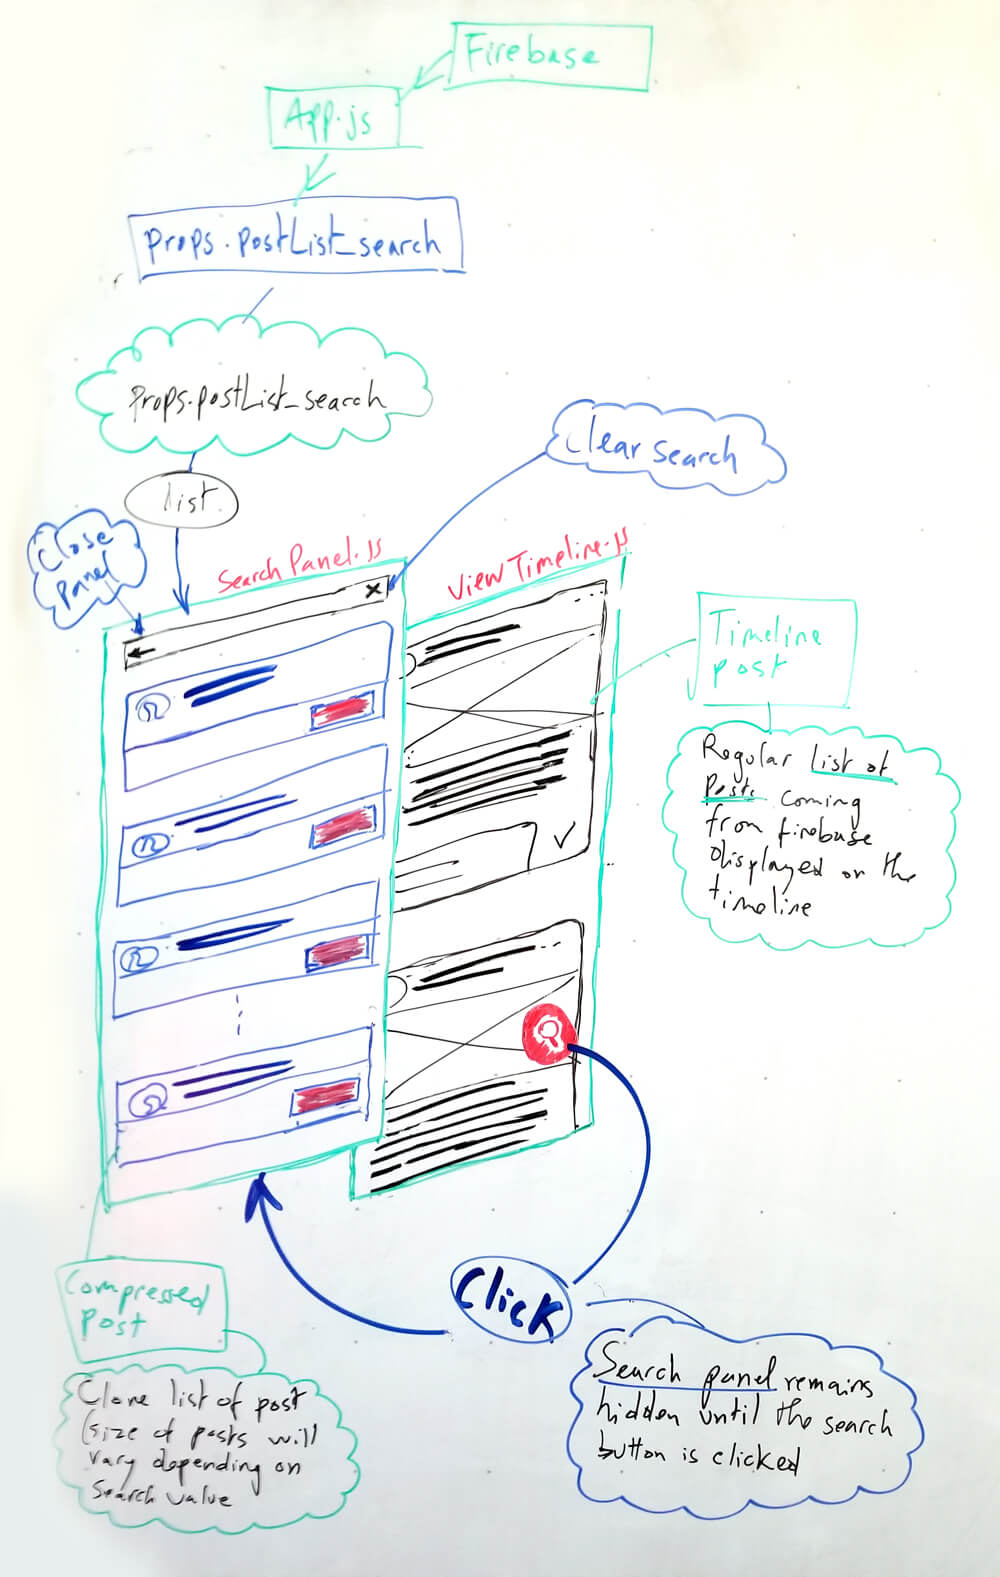 Firebase
App.js
props.postList_search
Props.postList_search
Clear search
list
Close
Panel
Search Panel.js
View Timeline.js
X
Timeline
post
Regular list of
Posts coming
from firebase
displayed on the
timeline
Click
Compressed
Post
Clone list of post
(size of posts will
vary depending on
Search value
Search panel remains
hidden until the search
button is clicked